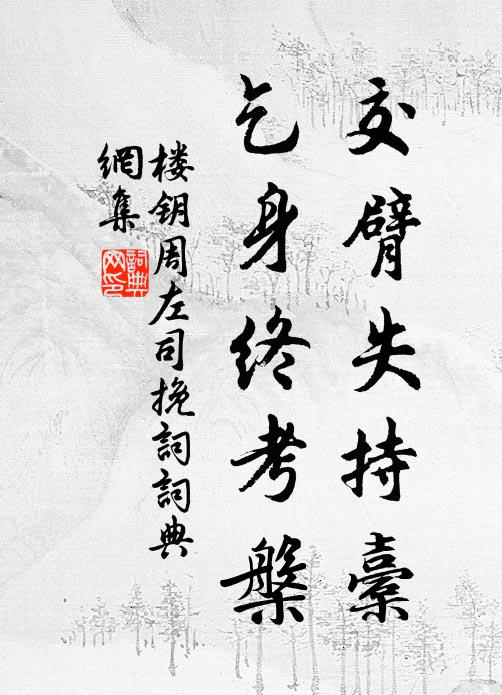 交臂失持橐
乞身终考槃
楼钥周左司挽詞詞典
網集
詞典
网印